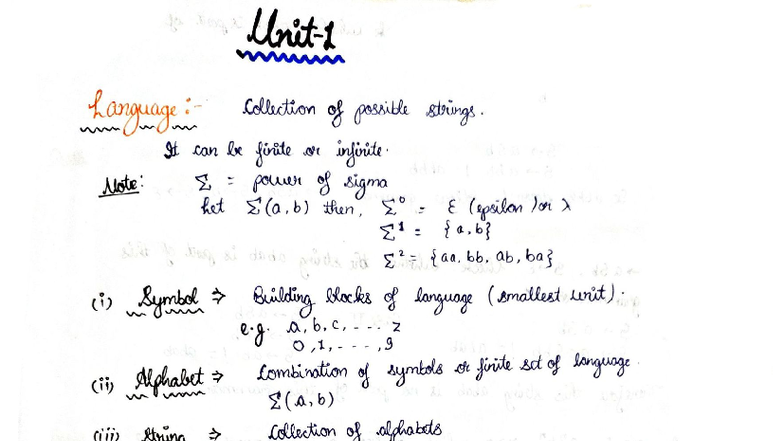 Unit-1
Language:- Collection of possible strings.
It can be finite or infinite.
Note: Σ = power of sigma
Let Σ(a,b) then, Σ⁰ = ε (epsilon) or λ
Σ¹ = {a,b}
Σ² = {aa, bb, ab, ba}
(i) Symbol ⇒ Building blocks of language (smallest unit).
e.g. a, b, c, ---- z
0, 1, ----, 9
(ii) Alphabet ⇒ Combination of symbols or finite set of language.
Σ(a,b)
(iii) String ⇒ Collection of alphabets